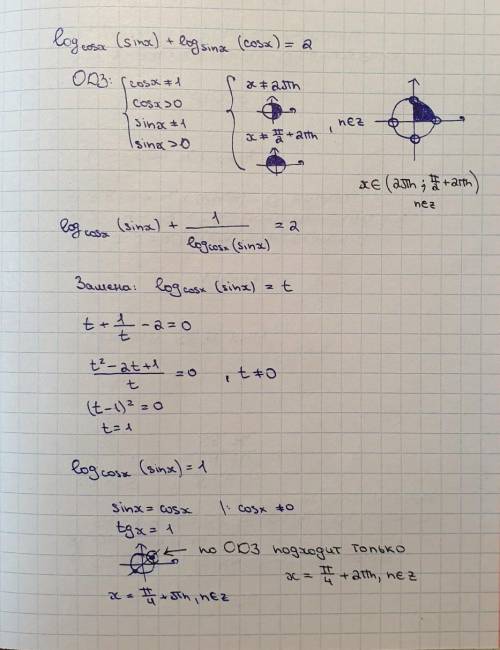 log_cosx (sinx) + log_sinx (cosx) = 2
ОДЗ: { cosx ≠ 1 { x ≠ 2πn
cosx > 0
sinx ≠ 1 x ≠ π/2 + 2πn , n∈z
sinx > 0
x ∈ (2πn ; π/2 + 2πn)
n∈z
log_cosx (sinx) + 1/log_cosx(sinx) = 2
Замена: log_cosx (sinx) = t
t + 1/t - 2 = 0
(t² - 2t + 1)/t = 0 , t ≠ 0
(t-1)² = 0
t = 1
log_cosx (sinx) = 1
sinx = cosx |: cosx ≠ 0
tgx = 1
← по ОДЗ подходит только
x = π/4 + 2πn, n∈z
x = π/4 + πn, n∈z